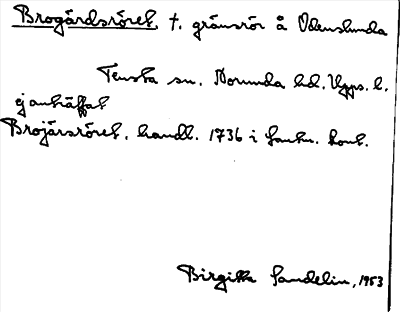 Brogårdsröret t. gränsrör å Odenslunda
Tensta sn. Norunda hd. Upps. l.
ej anträffat
Brojårsröret, handl. 1736 i Lantm. kont.
Birgitta Sandelin, 1953